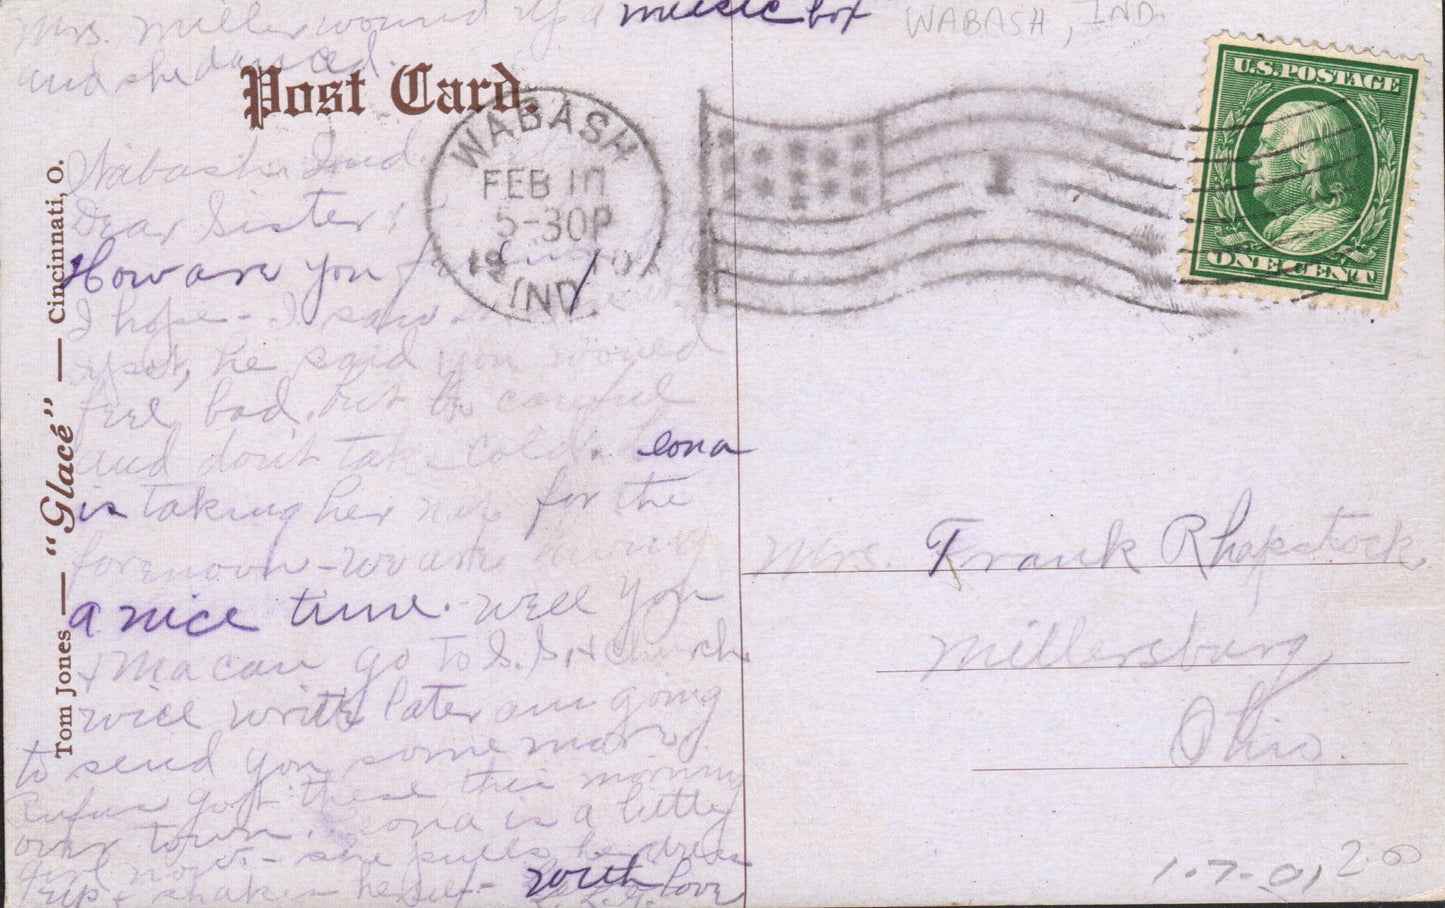 Mrs. Miller wound up a music box
and she danced.
WABASH, IND.
Post Card.
WABASH
FEB 10
5-30P
19 10
IND.
1
U.S. POSTAGE
ONE CENT
Tom Jones — "Glacé" — Cincinnati, O.
Wabash Ind.
Dear Sister
How are you
I hope - I saw
he said you
feel bad. but be careful
and don't take cold. Leona
is taking her nap for the
forenoon - we are having
a nice time. well you
& Ma can go to S. S. & church
will write later am going
to send you some more
Rufus got these this morning
over town. Leona is a little
girl now - she pulls her dress
up & shakes herself - with love
Mrs. Frank Rhapstock
Millersburg
Ohio.
1-7-01
2.00